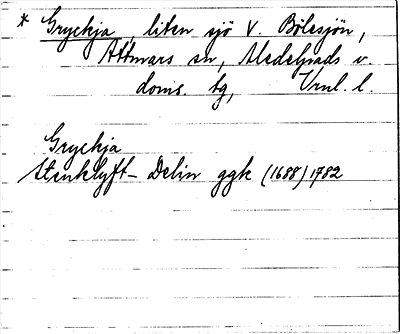 * Gryckja, liten sjö V. Bölesjön,
Attmars sn, Medelpads v.
doms. tg, Vnl. l.
Gryckja
Stenklyft- Delin ggk (1688) 1782